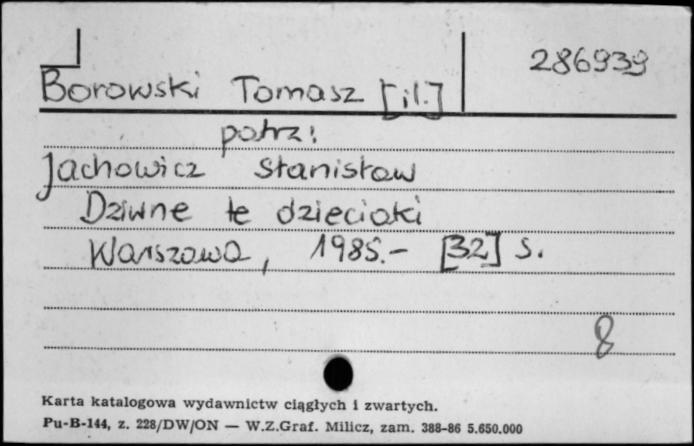 286939
Borowski Tomasz [il.]
patrz:
Jachowicz Stanisław
Dziwne te dzieciaki
Warszawa, 1985.- [32] s.
8
Karta katalogowa wydawnictw ciągłych i zwartych.
Pu-B-144, z. 228/DW/ON — W.Z.Graf. Milicz, zam. 388-86 5.650.000